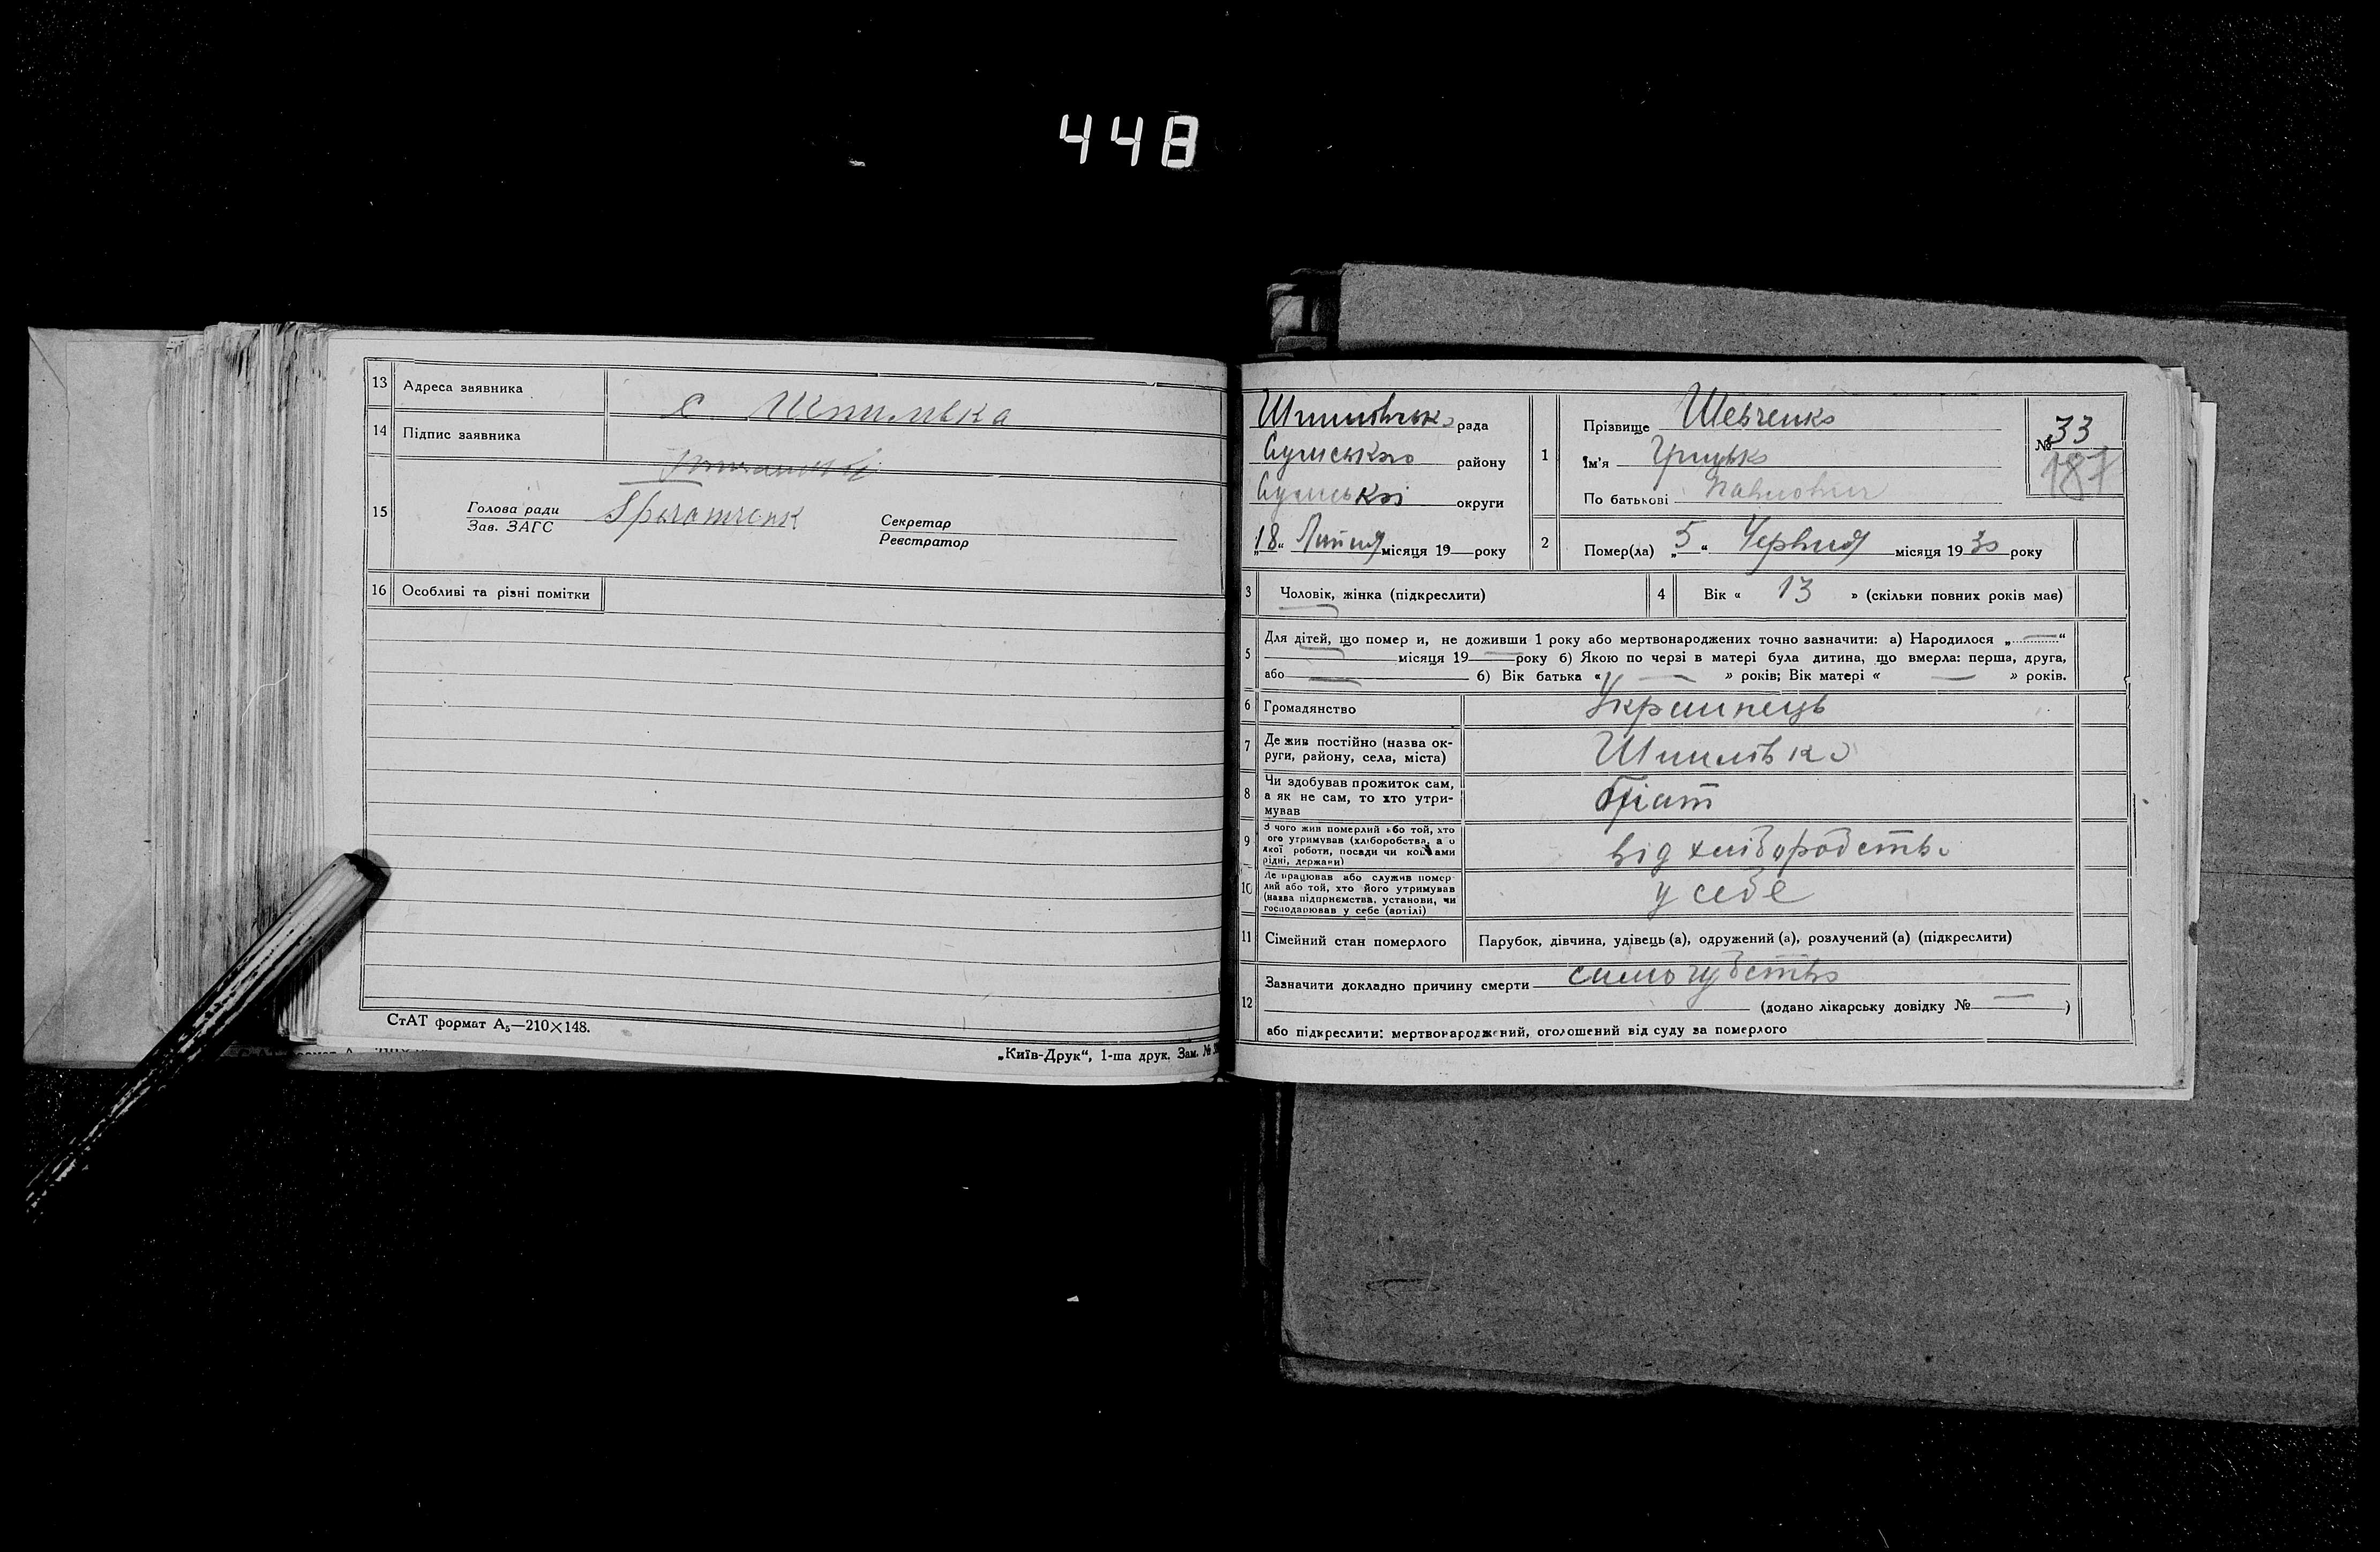 448
13 Адреса заявника с. Шпилівка
14 Підпис заявника
15 Голова ради
Зав. ЗАГС
Секретар
Реєстратор
16 Особливі та різні помітки
СтАТ формат А₅—210×148.
„Київ-Друк“, 1-ша друк. Зам. №
Шпилівська рада
Сумського району
Сумської округи
„18“ Липня місяця 19 року
1 Прізвище Шевченко
Ім'я Грицько
По батькові Павлович
№ 33
187
2 Помер(ла) „5“ Червня місяця 1930 року
3 Чоловік, жінка (підкреслити)
4 Вік « 13 » (скільки повних років має)
5 Для дітей, що помер и, не доживши 1 року або мертвонароджених точно зазначити: а) Народилося „—“
— місяця 19 — року б) Якою по черзі в матері була дитина, що вмерла: перша, друга,
або — б) Вік батька « — » років; Вік матері « — » років.
6 Громадянство Украинець
7 Де жив постійно (назва ок-
руги, району, села, міста) Шпилівка
8 Чи здобував прожиток сам,
а як не сам, то хто утри-
мував брат
9 З чого жив померлий або той, хто
ого утримував (хліборобства, а о
якої роботи, посади чи коштами
рідні, держави) від хліборобства
10 Де працював або служив помер
лий або той, хто його утримував
(назва підприємства, установи, чи
господарював у себе (артілі) у себе
11 Сімейний стан померлого Парубок, дівчина, удівець (а), одружений (а), розлучений (а) (підкреслити)
12 Зазначити докладно причину смерти самогубство
(додано лікарську довідку № — )
або підкреслити: мертвонароджений, оголошений від суду за померлого